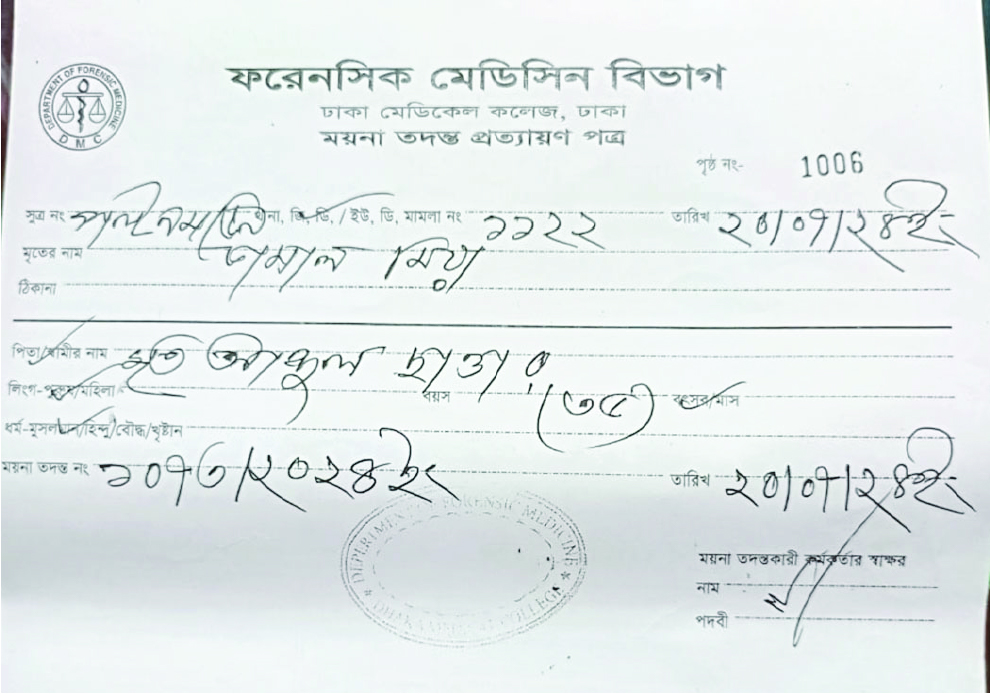 DEPARTMENT OF FORENSIC MEDICINE
DMC
ফরেনসিক মেডিসিন বিভাগ
ঢাকা মেডিকেল কলেজ, ঢাকা
ময়না তদন্ত প্রত্যায়ণ পত্র
পৃষ্ঠ নং- 1006
সুত্র নং থানা, জি, ডি, / ইউ, ডি, মামলা নং ১১২২ তারিখ ২০/০৭/২৪ইং
মৃতের নাম মিয়া
ঠিকানা
পিতা/স্বামীর নাম মৃত
লিংগ-পুরুষ/মহিলা বয়স (৩৫) বৎসর/মাস
ধর্ম-মুসলমান/হিন্দু/বৌদ্ধ/খৃষ্টান
ময়না তদন্ত নং ১০৭৩/২০২৪ইং তারিখ ২০/০৭/২৪ইং
DEPERTMENT OF FORENSIC MEDICINE
DHAKA MEDICAL COLLEGE
ময়না তদন্তকারী কর্মকর্তার স্বাক্ষর
নাম
পদবী